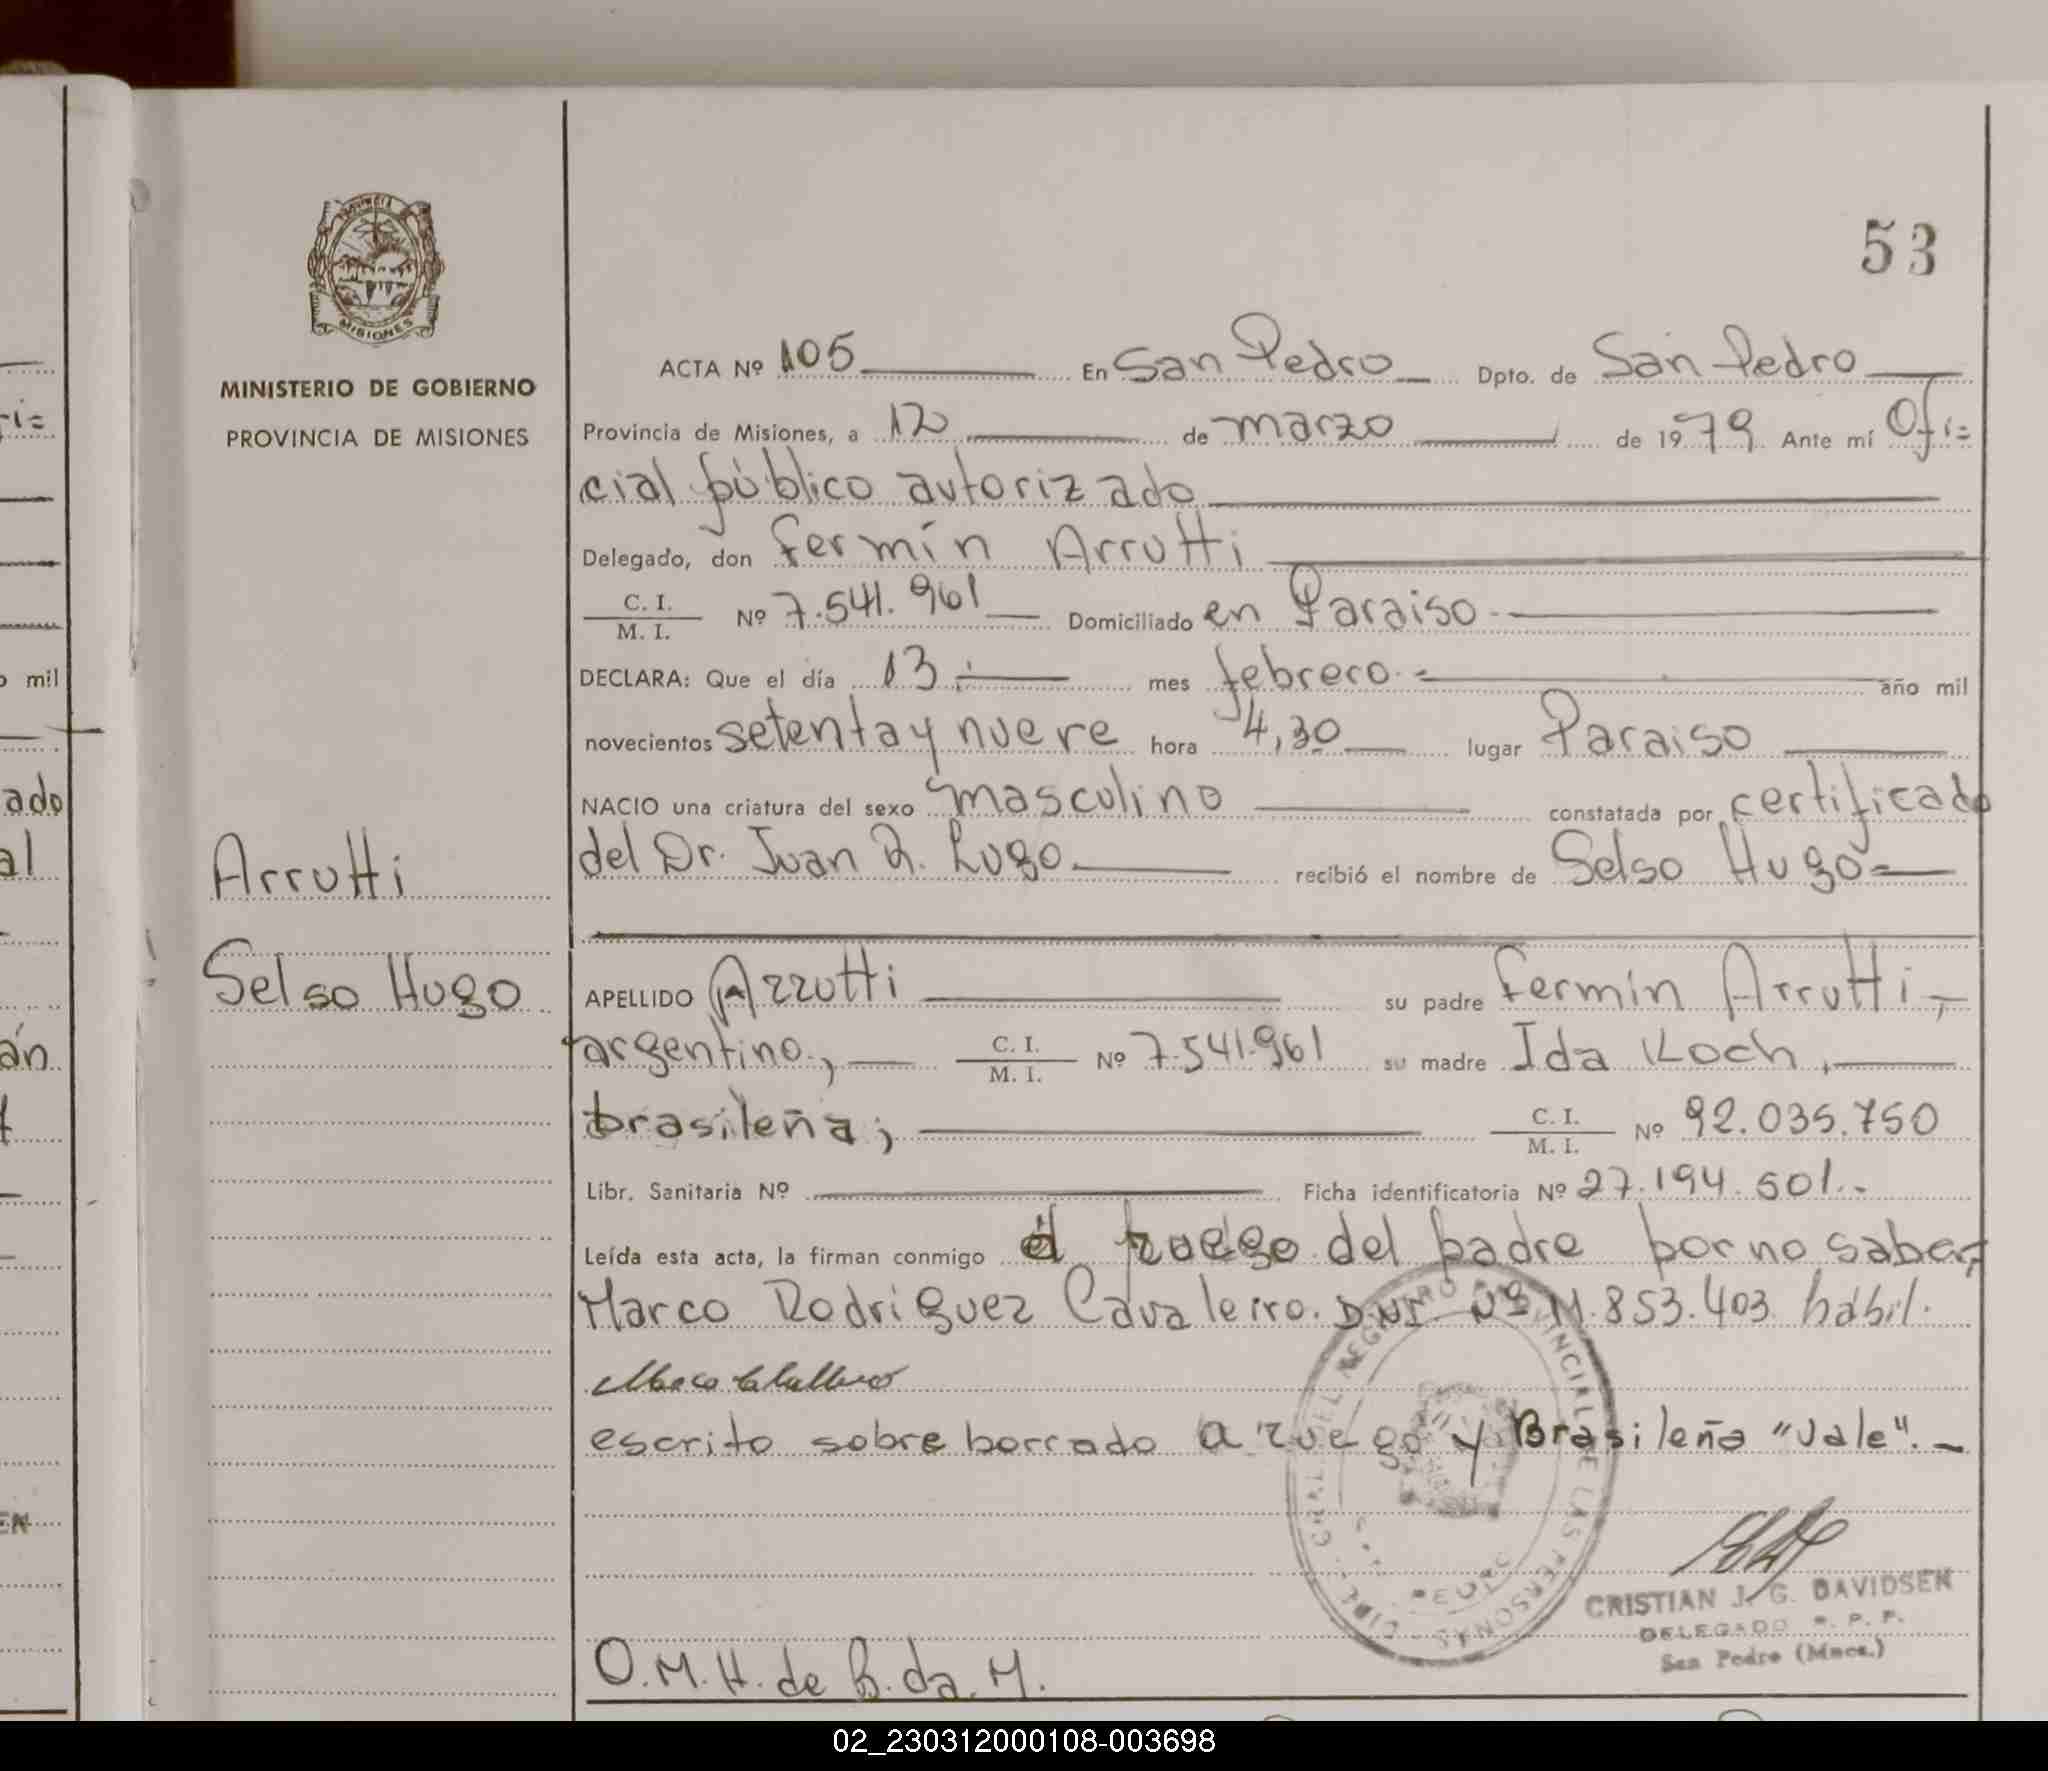 PROVINCIA
MISIONES
MINISTERIO DE GOBIERNO
PROVINCIA DE MISIONES
Arrutti
Selso Hugo
53
ACTA Nº 105 En San Pedro Dpto. de San Pedro
Provincia de Misiones, a 12 de marzo de 1979 Ante mí Ofi=
cial público autorizado
Delegado, don Fermín Arrutti
C. I. / M. I. Nº 7.541.961 Domiciliado en Paraiso
DECLARA: Que el día 13 mes febrero año mil
novecientos setenta y nueve hora 4,30 lugar Paraiso
NACIO una criatura del sexo masculino constatada por certificado
del Dr. Juan R. Lugo recibió el nombre de Selso Hugo=
APELLIDO Arrutti su padre Fermín Arrutti,
argentino, C. I. / M. I. Nº 7.541.961 su madre Ida Koch,
brasileña; C. I. / M. I. Nº 92.035.750
Libr. Sanitaria Nº Ficha identificatoria Nº 27.194.501.-
Leída esta acta, la firman conmigo a ruego del padre por no saber,
Marco Rodriguez Cavaleiro. DNI Nº 11.853.403 hábil.
escrito sobre borrado a ruego y Brasileña "Vale".-
CRISTIAN J. G. DAVIDSEN
DELEGADO R. P. P.
San Pedro (Mnes.)
O.M.H. de B. da. M.
mil
ado
al
án
EN
02_230312000108-003698